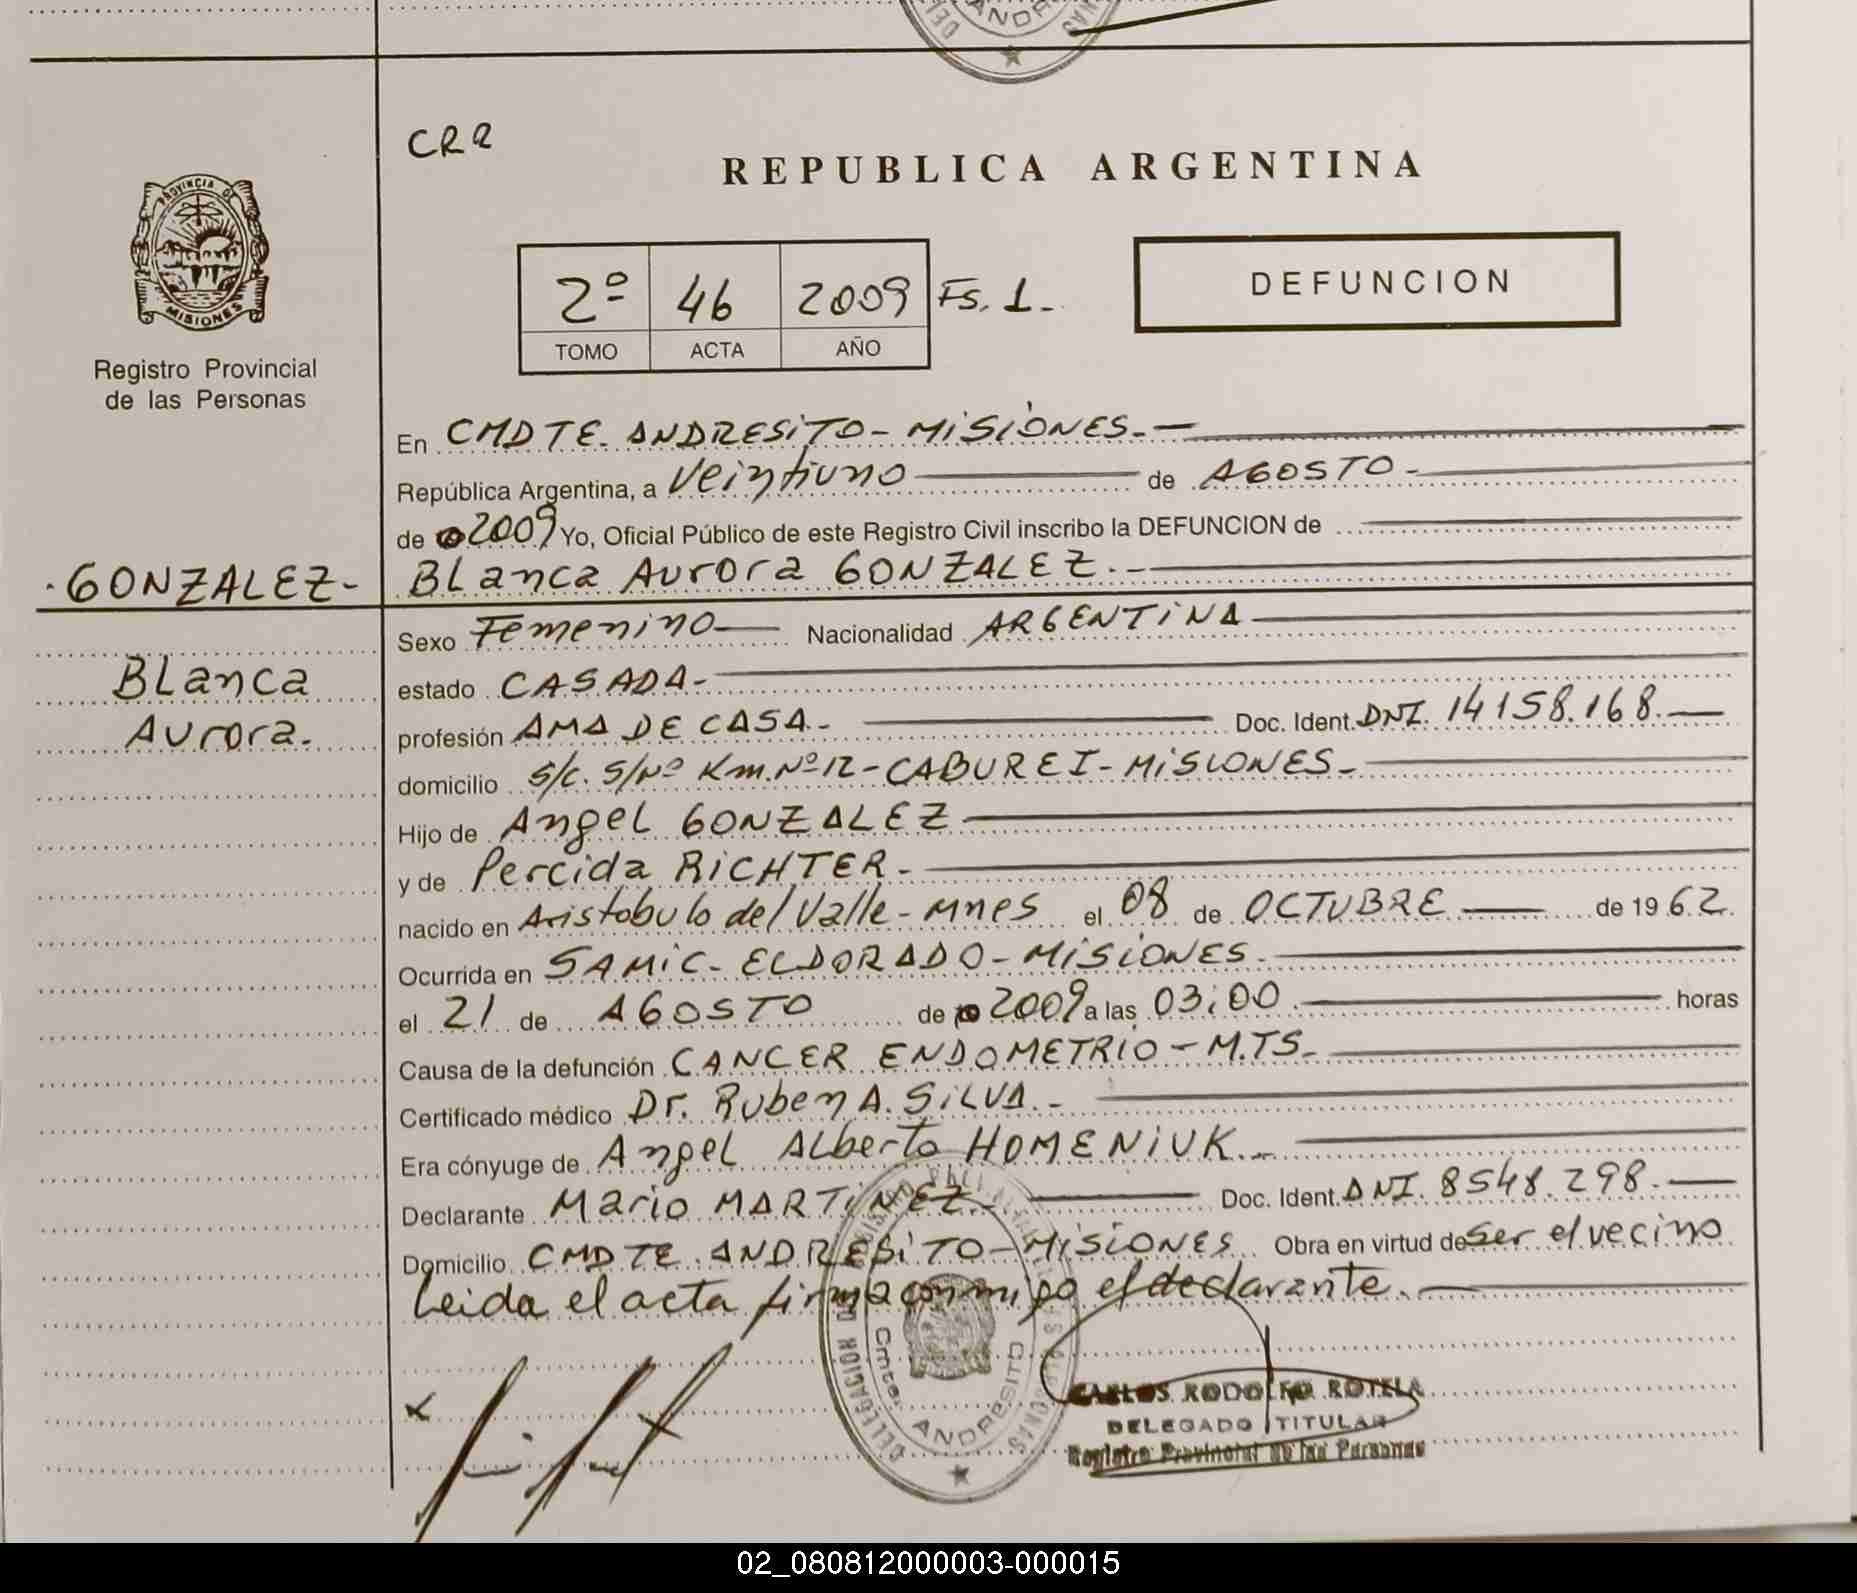 ANDR
CRR
REPUBLICA ARGENTINA
PROVINCIA DE
MISIONES
Registro Provincial
de las Personas
2º 46 2009 Fs. 1.-
TOMO ACTA AÑO
DEFUNCION
En CMDTE. ANDRESiTO - MiSiONES.-
República Argentina, a Veintiuno de AGOSTO.-
de 2009 Yo, Oficial Público de este Registro Civil inscribo la DEFUNCION de
GONZALEZ- BLanca Aurora GONZALEZ.-
Sexo Femenino Nacionalidad ARGENTiNA
BLanca
Aurora.
estado CASADA-
profesión AMA DE CASA.- Doc. Ident. DNI. 14158.168.-
domicilio S/c. S/Nº Km.Nº12-CABUREI-MiSIONES-
Hijo de Angel GONZALEZ
y de Percida RiCHTER.-
nacido en Aristobulo del Valle-Mnes el 08 de OCTUBRE de 1962.
Ocurrida en SAMiC- ELDORADO-MiSiONES.-
el 21 de AGOSTO de 2009 a las 03:00.- horas
Causa de la defunción CANCER ENDOMETRiO-M.TS.-
Certificado médico Dr. Ruben A. SiLVA.-
Era cónyuge de Angel ALberto HOMENiUK.-
Declarante Mario MARTiNEZ.- Doc. Ident. DNI. 8548.298.-
Domicilio CMDTE. ANDRESiTO-MiSiONES Obra en virtud de Ser el vecino
Leida el acta firma conmigo el declarante.-
DELEGACION
Cmte. ANDRESITO
CARLOS RODOLFO ROTELA
DELEGADO TITULAR
Registro Provincial de las Personas
02_080812000003-000015